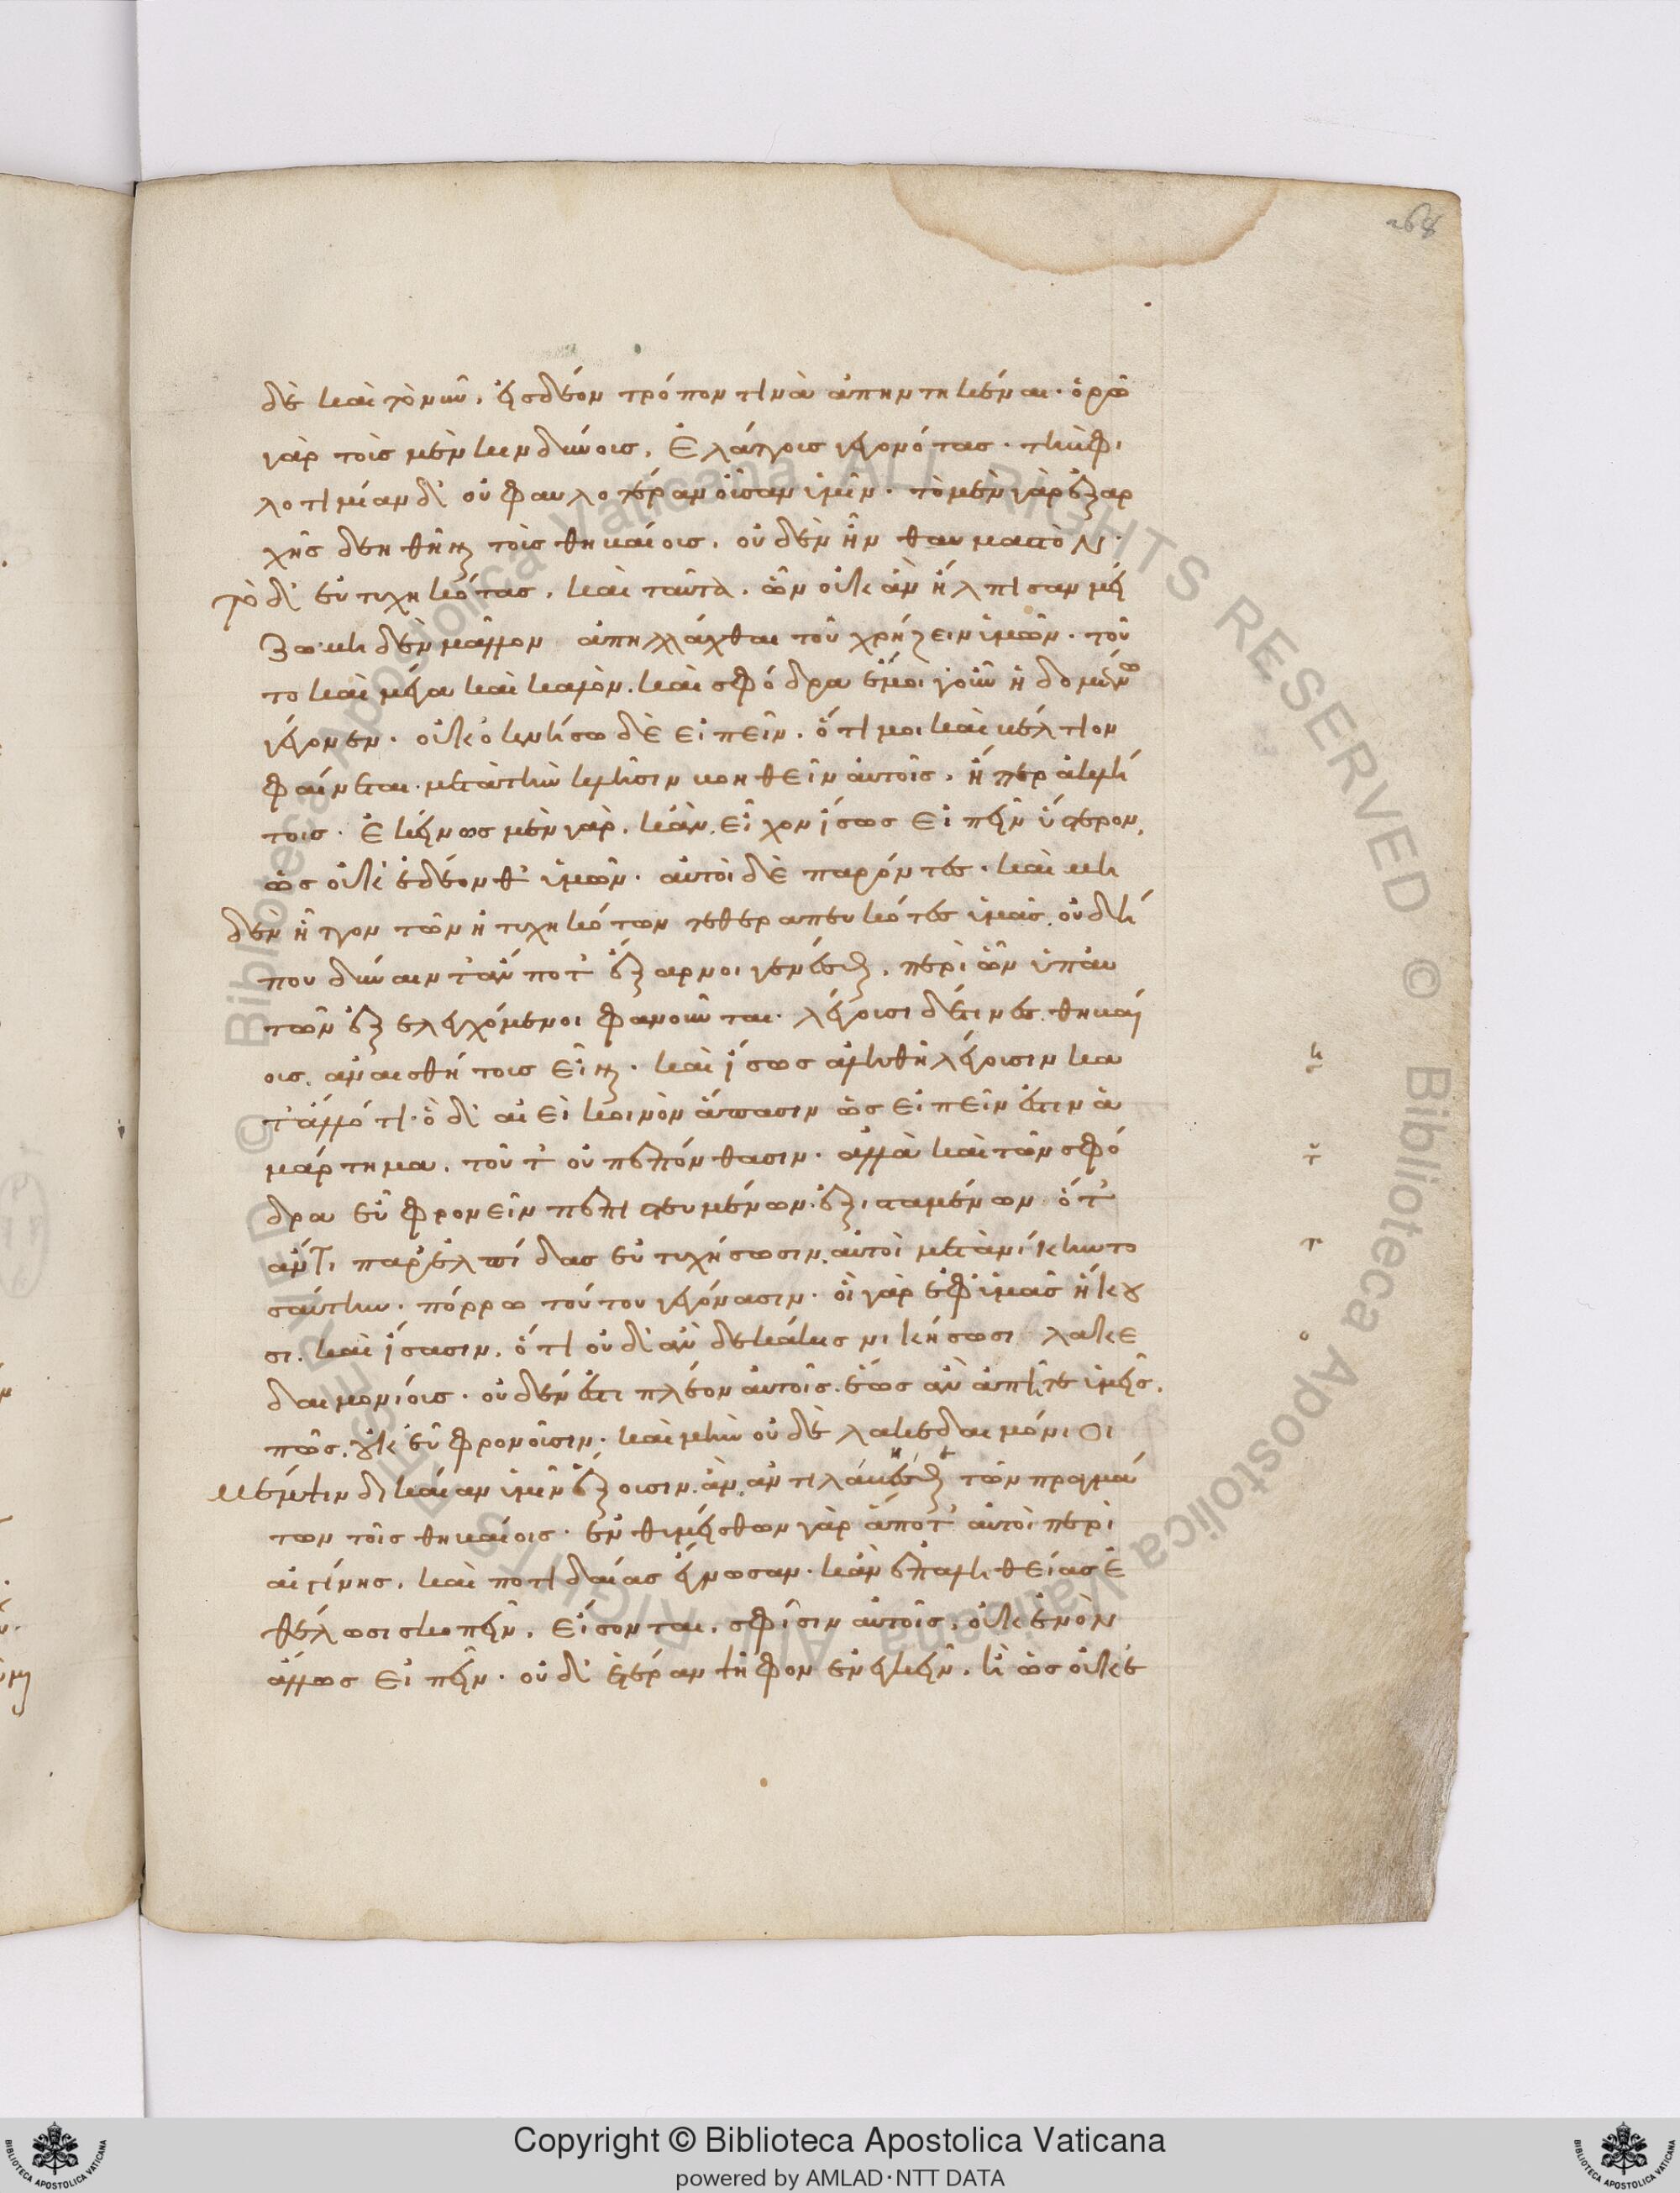 268
δὲ καὶ τὸ νῦν. εἰς δέον τρόπον τινὰ ἀπηντηκέναι· ὁρῶ
γὰρ τοῖς μὲν κινδύνοις, ἐλάττοις γεγονότας· τὴν φι
λοτιμίαν δ' οὐ φαυλοτέραν οὖσαν ὑμῖν· τὸ μὲν γὰρ ἐξαρ
χῆς δεηθῆναι τοῖς θηβαίοις, οὐδὲν ἦν θαυμαστὸν·
τὸ δ' εὐτυχηκότας, καὶ ταῦτα, ὧν οὐκ ἂν ἤλπισαν μεί
ζω· μηδὲν μᾶλλον ἀπηλλάχθαι τοῦ χρῄζειν ὑμῶν. τοῦ
το καὶ μέγα καὶ καλὸν. καὶ σφόδρα ἔμοιγ' οὖν ἡδομένω
γέγονεν. οὐκ ὀκνήσω δὲ εἰπεῖν. ὅτι μοι καὶ βέλτιον
φαίνεται. μετὰ τὴν κλῆσιν βοηθεῖν αὐτοῖς, ἤπερ ἀκλή
τοις. ἐκείνως μὲν γὰρ, κἂν, εἶχον ἴσως εἰπεῖν ὕστερον,
ὡς οὐκ ἐδέονθ' ὑμῶν· αὐτοὶ δὲ παρόντες. καὶ μη
δὲν ἧττον τῶν ἠτυχηκότων τεθεραπευκότες ὑμᾶς, οὐ δή
που δύναιντ' ἄν ποτ' ἔξαρνοι γενέσθαι, περὶ ὧν ὑπ' αὐ
τῶν ἐξελεγχόμενοι φανοῦνται. λέγουσι δέ τινες. θηβαί
οις. ἀναισθήτοις εἶναι· καὶ ἴσως ἀληθῆ λέγουσιν κα
τ' ἄλλό τι· ὃ δ' ἀεὶ κοινὸν ἅπασιν ὡς εἰπεῖν ἐστιν ἁ
μάρτημα, τοῦτ' οὐ πεπόνθασιν. ἀλλὰ καὶ τῶν σφό
δρα εὖ φρονεῖν πεπιστευμένων. ἐξισταμένων ὅτ'
ἄν τι παρ' ἐλπίδας εὐτυχήσωσιν. αὐτοὶ μετὰ νίκην το
σαύτην. πόρρω τούτου γεγόνασιν. οἳ γὰρ ἐφ' ὑμᾶς ἥκου
σι. καὶ ἴσασιν, ὅτι οὐδ' ἂν δεκάκις νικήσωσι λακε
δαιμονίοις. οὐδέν ἐστι πλέον αὐτοῖς. ἕως ἂν ἀπῆτε ὑμεῖς,
πῶς, οὐκ εὖ φρονοῦσιν. καὶ μὴν οὐδὲ λακεδαιμόνιοι
μέμψιν δικαίαν ὑμῖν ἕξουσιν. ἂν ἀντιλάβησθε τῶν πραγμά
των τοῖς θηβαίοις. ἐνθυμείσθων γὰρ ἅποτ' αὐτοὶ περὶ
αἰγίνης, καὶ ποτιδαίας ἔγνωσαν. κἂν ἐπ' ἀληθείας ἐ
θέλωσι σκοπεῖν, εἴσονται, σφίσιν αὐτοῖς, οὐκ ἐνὸν
ἄλλως εἰπεῖν. οὐδ' ἑτέραν ψῆφον ἐνεγκεῖν. ἢ ὡς οὐκ ἐ